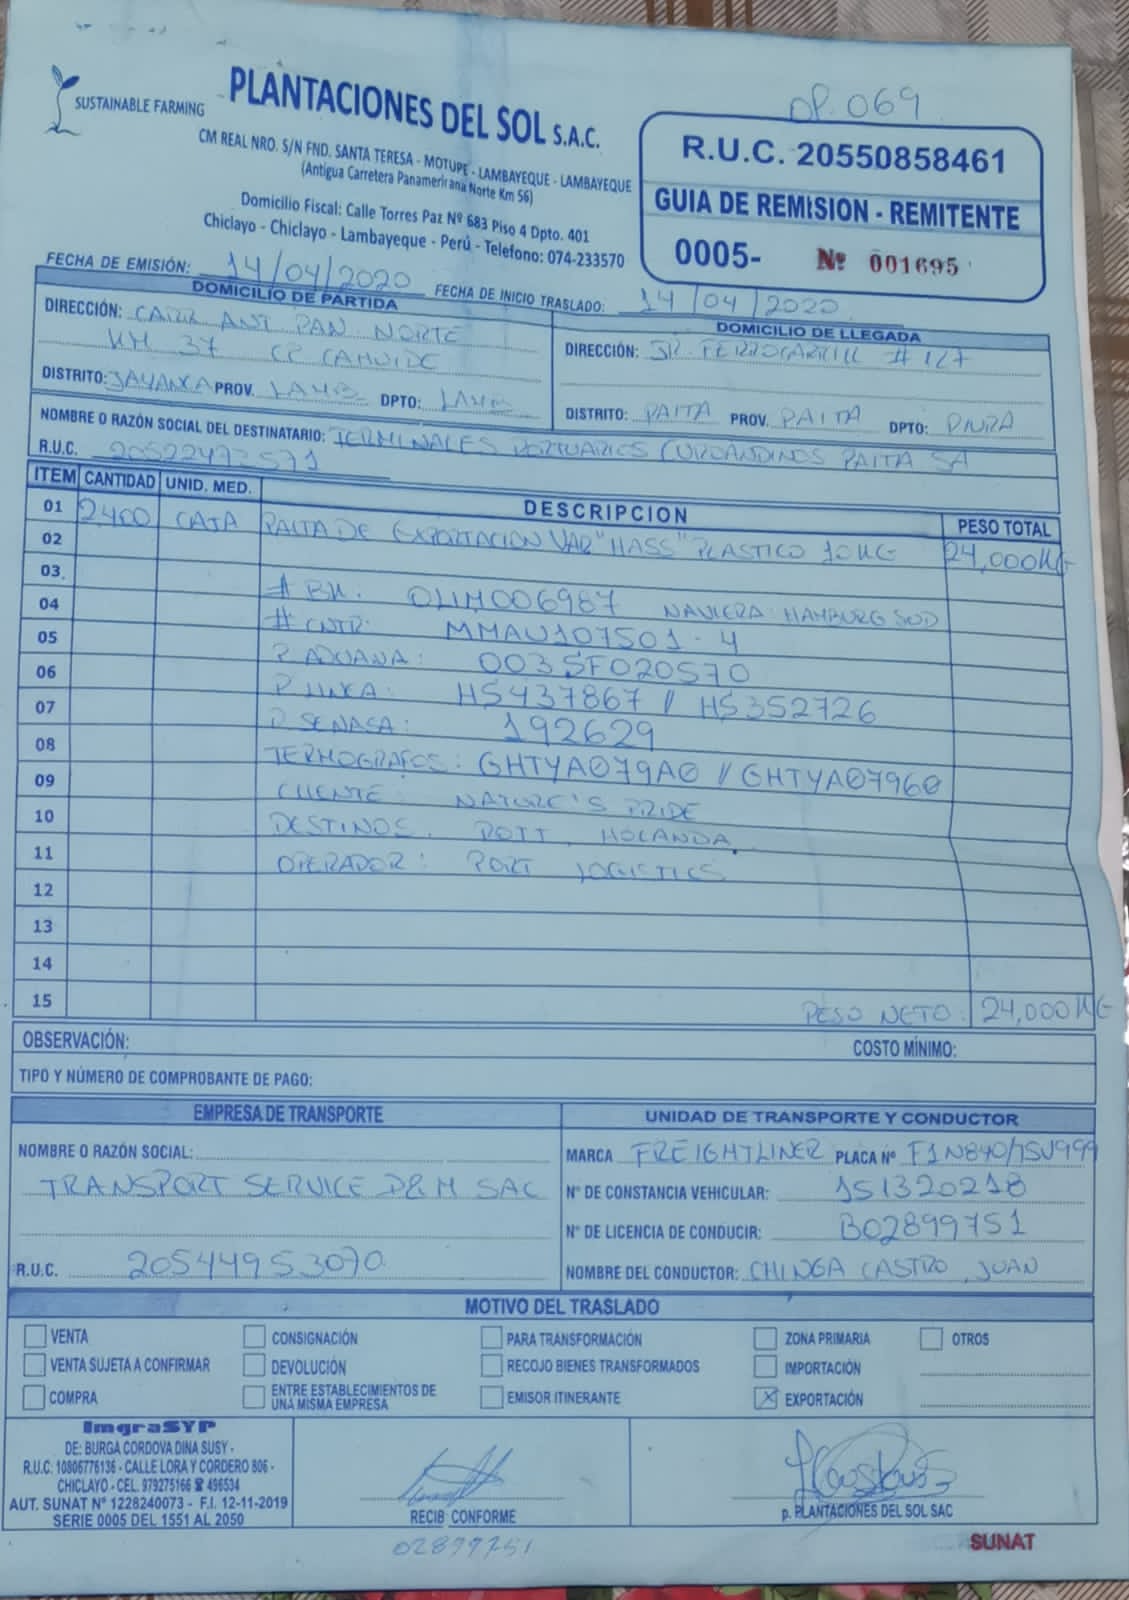 OP. 069
SUSTAINABLE FARMING
PLANTACIONES DEL SOL S.A.C.
CM REAL NRO. S/N FND. SANTA TERESA - MOTUPE - LAMBAYEQUE - LAMBAYEQUE
(Antigua Carretera Panamerirana Norte Km 56)
Domicilio Fiscal: Calle Torres Paz Nº 683 Piso 4 Dpto. 401
Chiclayo - Chiclayo - Lambayeque - Perú - Telefono: 074-233570
R.U.C. 20550858461
GUIA DE REMISION - REMITENTE
0005- Nº 001695
FECHA DE EMISIÓN: 14/04/2020 FECHA DE INICIO TRASLADO: 14/04/2020
DOMICILIO DE PARTIDA
DIRECCIÓN: CARR ANT PAN. NORTE
KM 37 CP CAHUIDE
DISTRITO: JAYANCA PROV. LAMB DPTO: LAMB
DOMICILIO DE LLEGADA
DIRECCIÓN: JR. FERROCARRIL # 127
DISTRITO: PAITA PROV. PAITA DPTO: PIURA
NOMBRE O RAZÓN SOCIAL DEL DESTINATARIO: TERMINALES PORTUARIOS EUROANDINOS PAITA SA
R.U.C. 20522473571
ITEM CANTIDAD UNID. MED. DESCRIPCION PESO TOTAL
01 2,400 CAJA PALTA DE EXPORTACION VAR "HASS" PLASTICO 10 KG 24,000KG
02
03 # BK. OLIM006987 NAVIERA: HAMBURG SUD
04 # CNTR: MMAU107501-4
05 P. ADUANA: 0035F020570
06 P LINEA: HS437867 // HS352726
07 P SENASA: 192629
08 TERMOGRAFOS: GHTYA079A0 // GHTYA07960
09 CLIENTE: NATURE'S PRIDE
10 DESTINOS. ROTT, HOLANDA.
11 OPERADOR: PORT LOGISTICS
12
13
14
15 PESO NETO: 24,000 KG
OBSERVACIÓN:
COSTO MÍNIMO:
TIPO Y NÚMERO DE COMPROBANTE DE PAGO:
EMPRESA DE TRANSPORTE
NOMBRE O RAZÓN SOCIAL:
TRANSPORT SERVICE D&M SAC
R.U.C. 20544953070
UNIDAD DE TRANSPORTE Y CONDUCTOR
MARCA FREIGHTLINER PLACA Nº F1N840/TSU999
N° DE CONSTANCIA VEHICULAR: 151320218
N° DE LICENCIA DE CONDUCIR: B02899751
NOMBRE DEL CONDUCTOR: CHINGA CASTRO JUAN
MOTIVO DEL TRASLADO
VENTA CONSIGNACIÓN PARA TRANSFORMACIÓN ZONA PRIMARIA OTROS
VENTA SUJETA A CONFIRMAR DEVOLUCIÓN RECOJO BIENES TRANSFORMADOS IMPORTACIÓN
COMPRA ENTRE ESTABLECIMIENTOS DE UNA MISMA EMPRESA EMISOR ITINERANTE X EXPORTACIÓN
ImgraSYP
DE: BURGA CORDOVA DINA SUSY -
R.U.C. 10806776136 - CALLE LORA Y CORDERO 806 -
CHICLAYO - CEL. 979275166 ☎ 496534
AUT. SUNAT Nº 1228240073 - F.I. 12-11-2019
SERIE 0005 DEL 1551 AL 2050
RECIBI CONFORME
02899751
p. PLANTACIONES DEL SOL SAC
SUNAT